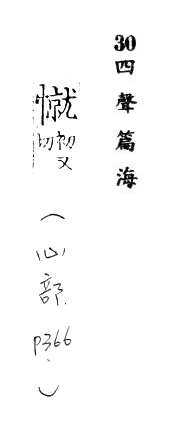 30四聲篇海
憱初又切
(心部 p366.)